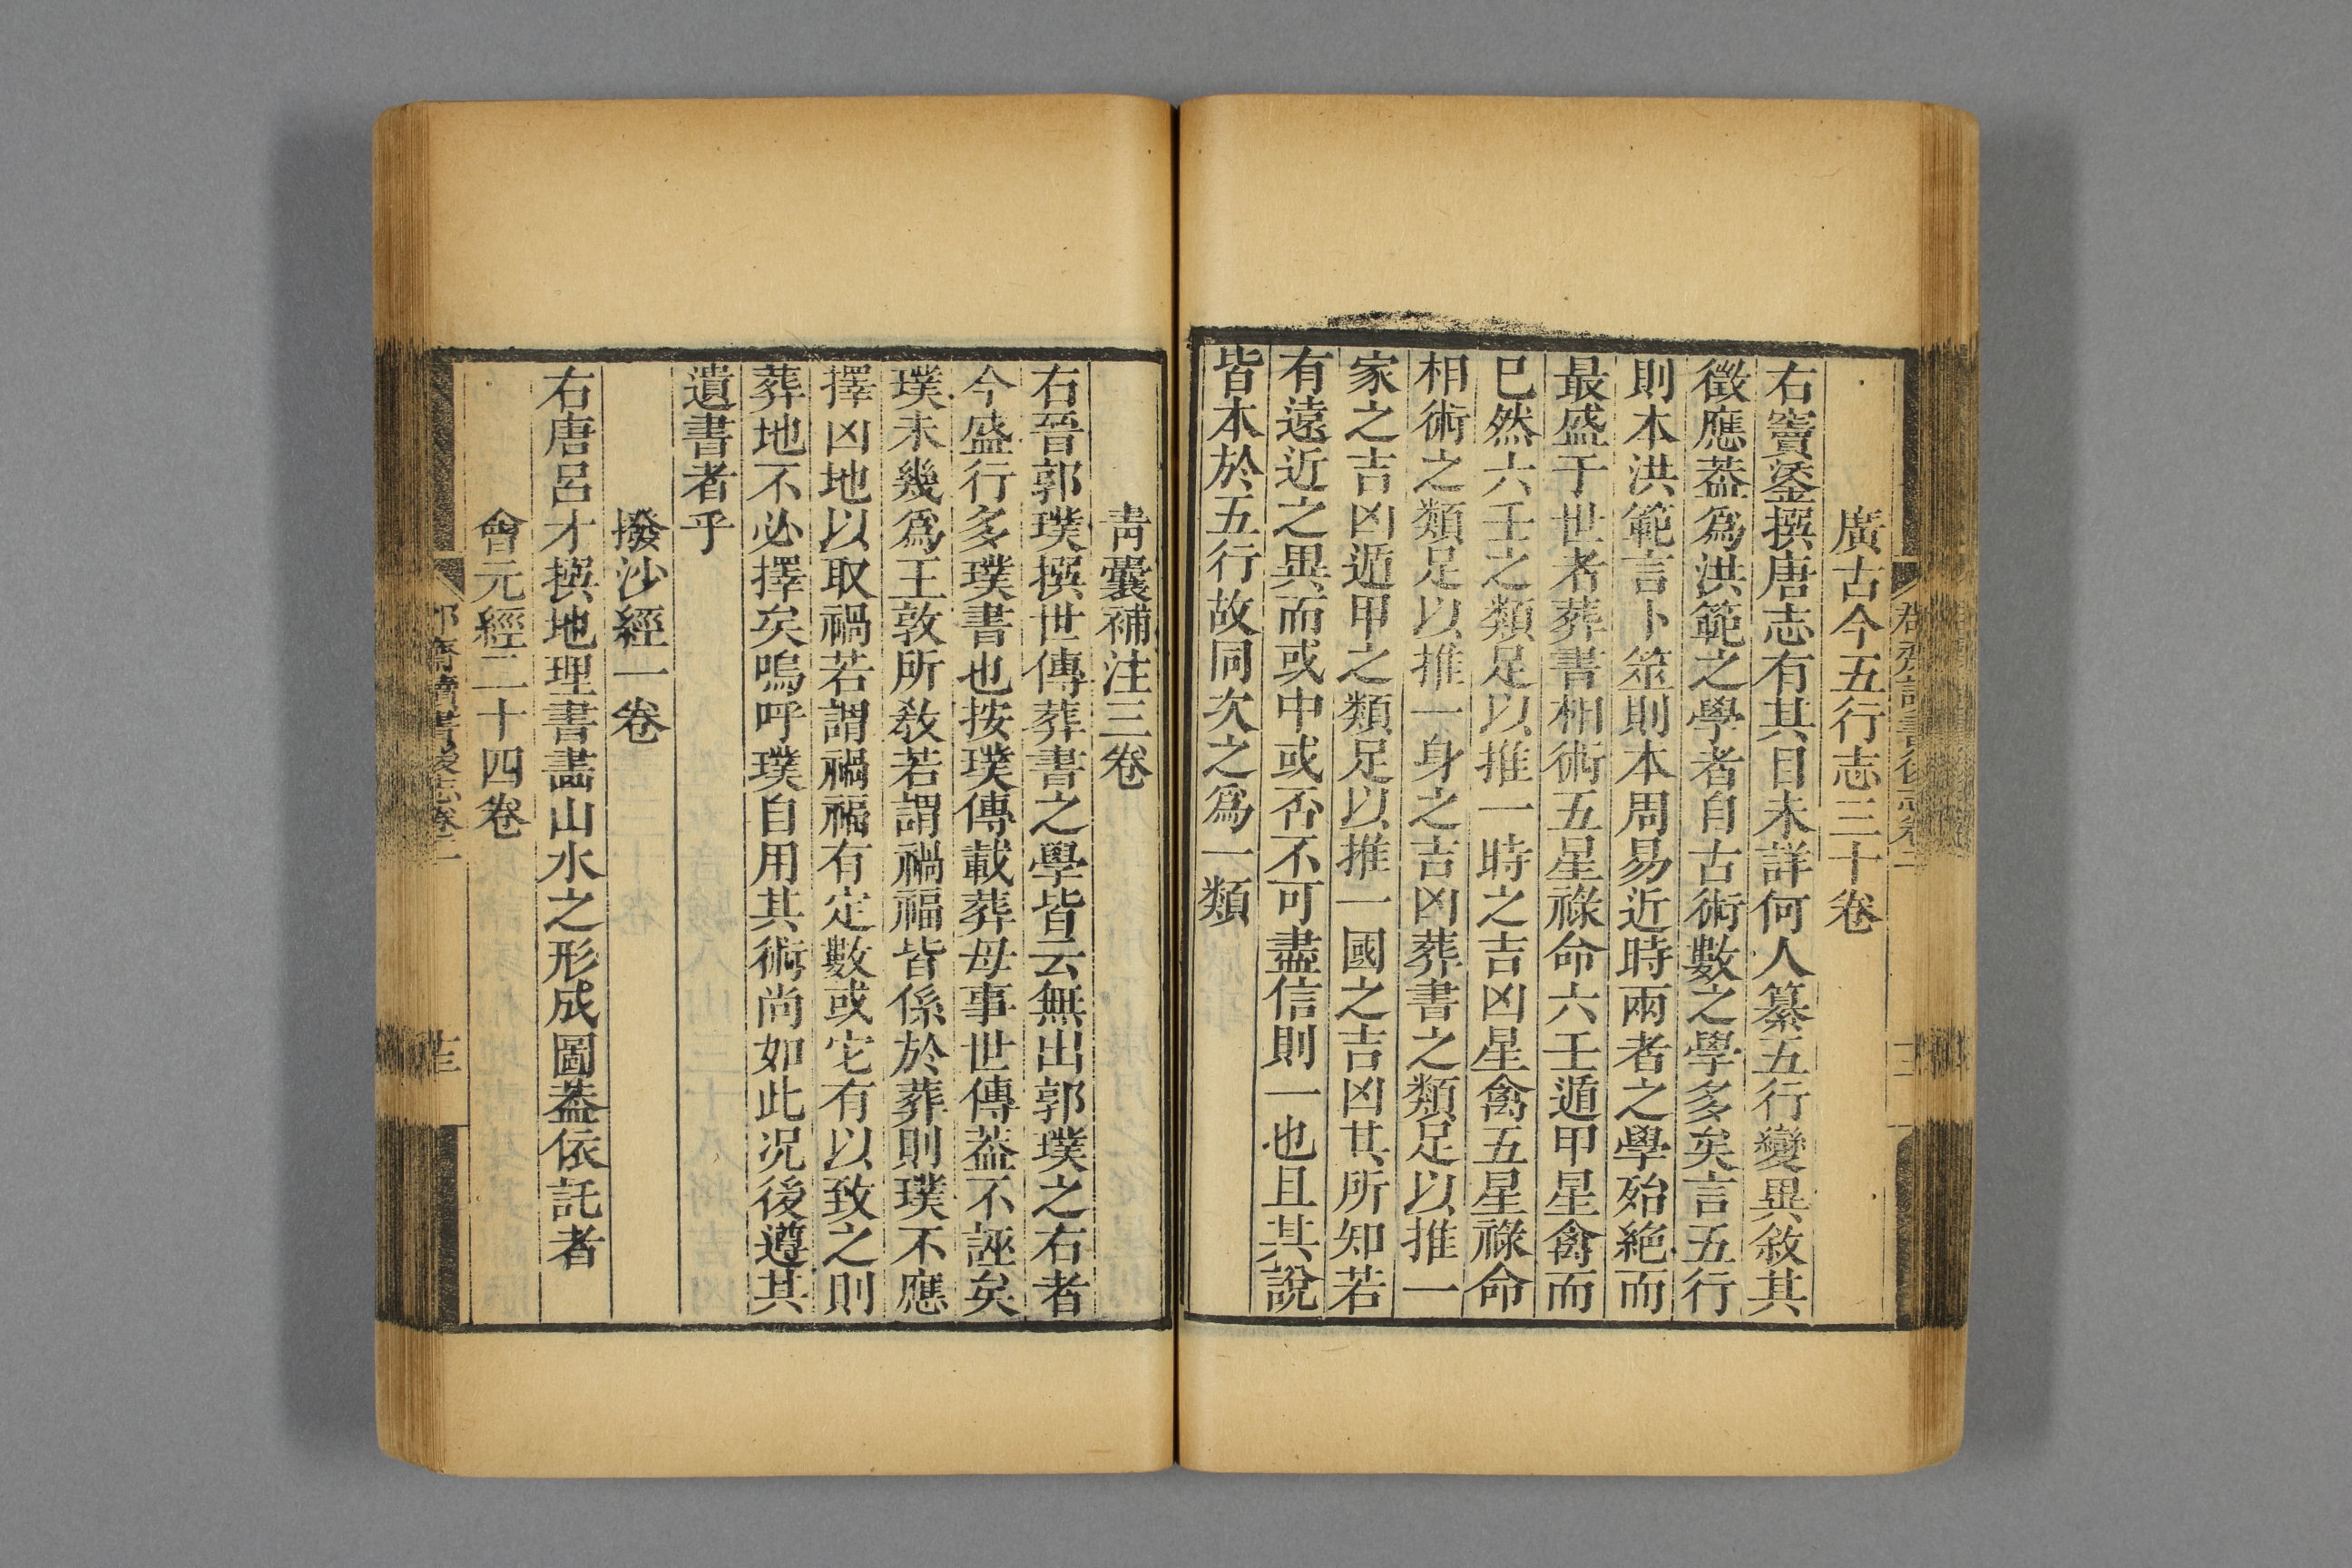 廣古今五行志三十卷
右竇鋈撰唐志有其目未詳何人纂五行變異敘其
徵應葢爲洪範之學者自古術數之學多矣言五行
則本洪範言卜筮則本周易近時兩者之學殆絶而
最盛于世者葬書相術五星祿命六壬遁甲星禽而
巳然六壬之類足以推一時之吉凶星禽五星祿命
相術之類足以推一身之吉凶葬書之類足以推一
家之吉凶遁甲之類足以推一國之吉凶其所知若
有遠近之異而或中或否不可盡信則一也且其說
皆本於五行故同次之爲一類
青囊補注三卷
右晉郭璞撰世傳葬書之學皆云無出郭璞之右者
今盛行多璞書也按璞傳載葬母事世傳葢不誣矣
璞未幾爲王敦所殺若謂禍福皆係於葬則璞不應
擇凶地以取禍若謂禍福有定數或它有以致之則
葬地不必擇矣嗚呼璞自用其術尚如此况後遵其
遺書者乎
撥沙經一卷
右唐呂才撰地理書畵山水之形成圖葢依託者
會元經二十四卷
郡齋讀書後志卷二